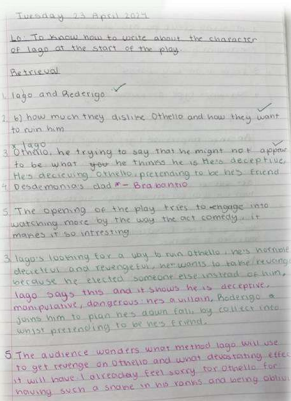 Tuesday 23 April 2024
Lo: To know how to write about the character
of Iago at the start of the play
Retrieval
1. Iago and Rederigo
2. b) how much they dislike Othello and how they want
to ruin him
x Iago
3 Othello, he trying to say that he might not appear
to be what you he thinks he is He's deceptive
He's decieving othello, pretending to be he's friend
4. Desdemonia's dad - Brabantio
5. The opening of the play tries to engage into
watching more by the way the act comedy. it
makes it so interesting
3. Iago's looking for a way to ruin othello, he's
deceitful and revengeful, he wants to take revenge
because he elected someone else instead of him,
Iago says this and it shows he is deceptive,
manipulative, dangerous he's a villain, Roderigo
joins him to plan he's down fall, by
whilst pretending to be he's friend.
5 The audience wonders what method Iago will use
to get revenge on Othello and what devastating effect
it will have I already feel sorry for Othello for
having such a snake in his ranks and being